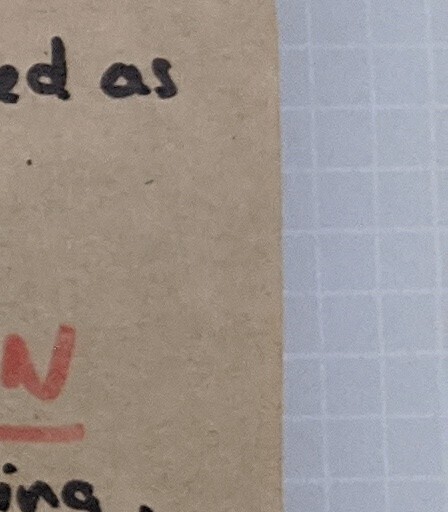 ed as
N
ing,